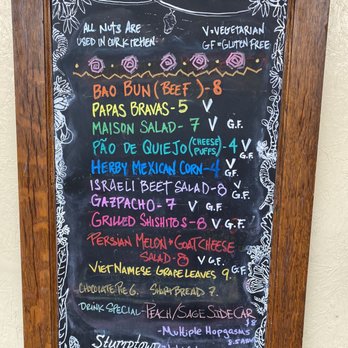 ALL NUTS ARE
USED IN OUR KITCHEN
V=VEGETARIAN
GF=GLUTEN FREE
BAO BUN (BEEF)-8
PAPAS BRAVAS-5 V
MAISON SALAD-7 V G.F.
PÃO DE QUIEJO (CHEESE PUFFS)-4 V G.F.
HERBY MEXICAN CORN-4 V G.F.
ISRAELI BEET SALAD-8 V G.F.
GAZPACHO-7 V G.F.
GRILLED SHISHITOS-8 V G.F.
PERSIAN MELON+GOAT CHEESE
SALAD-8 V G.F.
VIETNAMESE GRAPE LEAVES 9. G.F.
CHOCOLATE PIE 6. SHORTBREAD 7.
DRINK SPECIAL PEACH/SAGE SIDECAR
$8
-Multiple Hopgasms
Stumptown